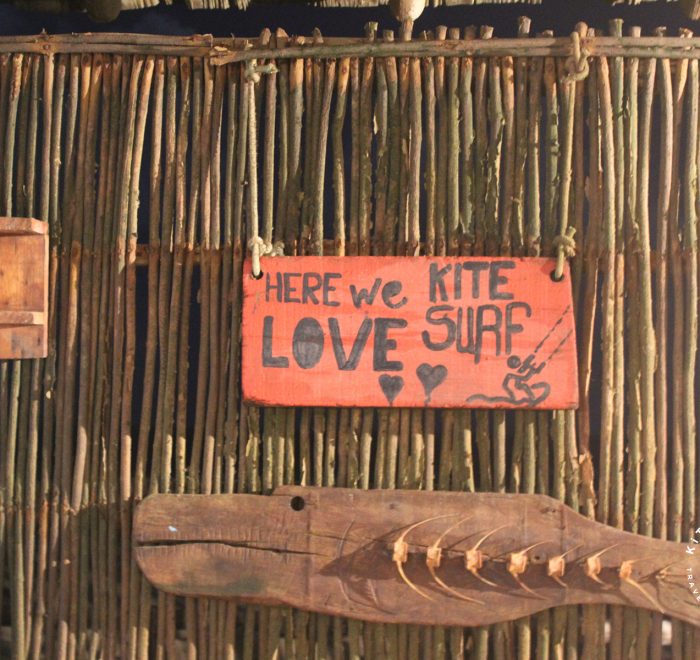 HERE we KITE
LOVE SURF